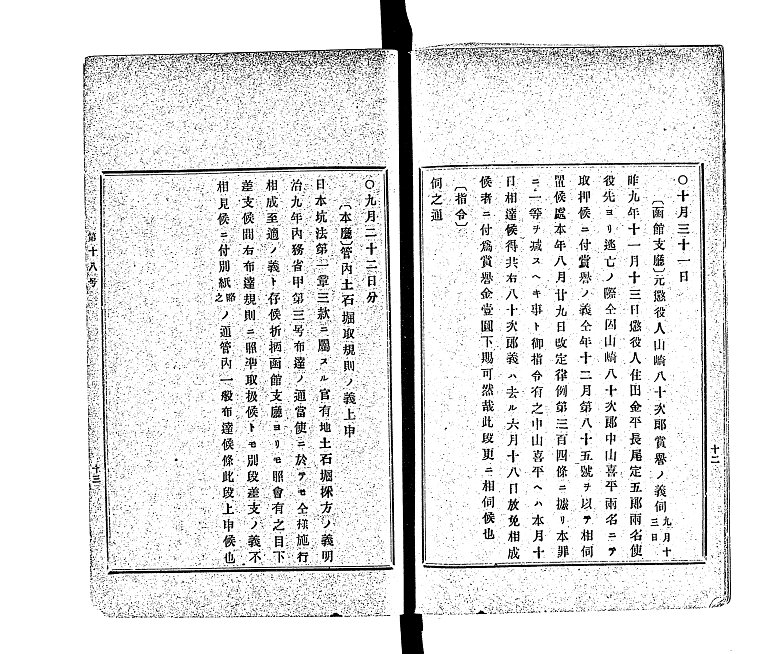 〇十月三十一日
〔函館支廳〕元懲役人山崎八十次郎賞譽ノ義伺九月十三日
昨九年十一月十三日懲役人住田金平長尾定五郎兩名使
役先ヨリ逃亡ノ際仝囚山崎八十次郎中山喜平兩名ニテ
取押候ニ付賞譽ノ義仝年十二月第八十五號ヲ以テ相伺
置候處本年八月廿九日改定律例第三百四條ニ據リ本罪
ニ一等ヲ减スヘキ事ト御指令有之中山喜平ヘハ本月十
日相達候得共右八十次郎義ハ去ル六月十八日放免相成
候者ニ付爲賞譽金壹圓下賜可然哉此段更ニ相伺候也
〔指令〕
伺之通
十二
〇九月二十二日分
〔本廳〕管內土石堀取規則ノ義上申
日本坑法第二章三款ニ屬スル官有地土石堀採方ノ義明
治九年內務省甲第三号布達ノ通當使ニ於テモ仝樣施行
相成至適ノ義ト存候折柄函館支廳ヨリモ照會有之目下
差支候間右布達規則ニ照準取扱候トモ別段差支ノ義不
相見候ニ付別紙略之ノ通管內一般布達候條此段上申候也
第十八号
十三